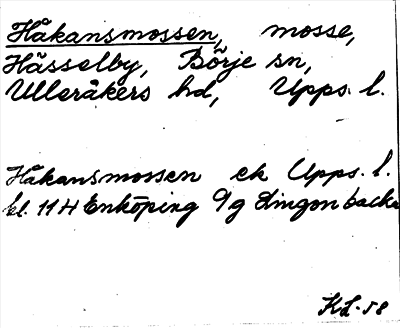 Håkansmossen, mosse,
Hässelby, Börje sn,
Ulleråkers hd, Upps. l.
Håkansmossen ek Upps. l.
bl. 11 H Enköping 9g Lingonbacka
KL-58